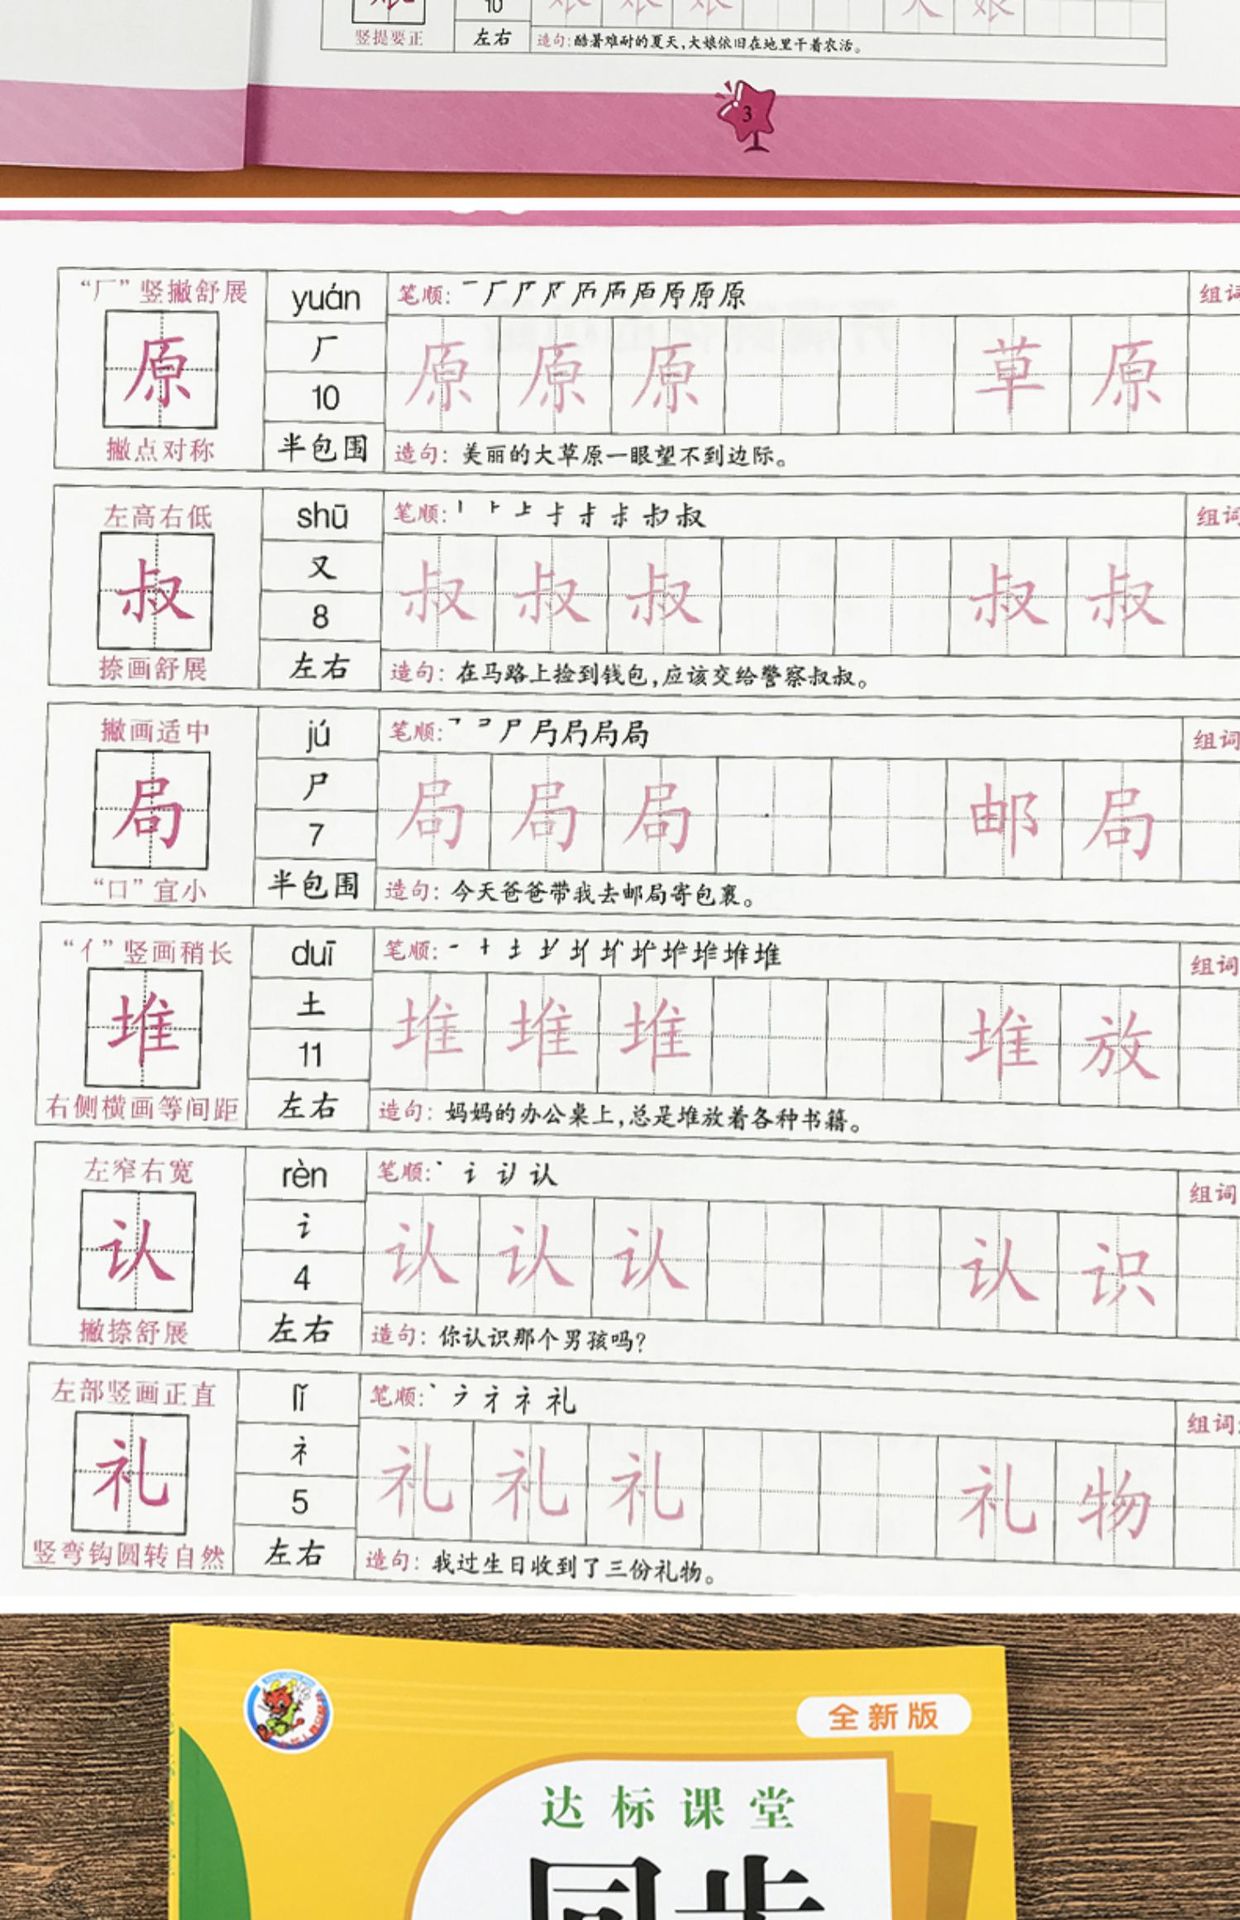 10
竖提要正
左右
造句:酷暑难耐的夏天,大娘依旧在地里干着农活。
3
“厂”竖撇舒展
原
撇点对称
yuán
厂
10
半包围
笔顺:
组词
原 原 原 草 原
造句:美丽的大草原一眼望不到边际。
左高右低
叔
捺画舒展
shū
又
8
左右
笔顺:
组词
叔 叔 叔 叔 叔
造句:在马路上捡到钱包,应该交给警察叔叔。
撇画适中
局
“口”宜小
jú
尸
7
半包围
笔顺:
组词
局 局 局 邮 局
造句:今天爸爸带我去邮局寄包裹。
“亻”竖画稍长
堆
右侧横画等间距
duī
土
11
左右
笔顺:
组词
堆 堆 堆 堆 放
造句:妈妈的办公桌上,总是堆放着各种书籍。
左窄右宽
认
撇捺舒展
rèn
讠
4
左右
笔顺:
组词
认 认 认 认 识
造句:你认识那个男孩吗?
左部竖画正直
礼
竖弯钩圆转自然
lǐ
礻
5
左右
笔顺:
组词:
礼 礼 礼 礼 物
造句:我过生日收到了三份礼物。
全新版
达标课堂
同步